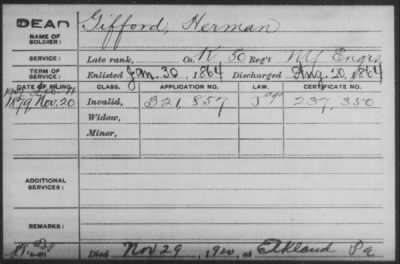 DEAD
NAME OF SOLDIER: Gifford, Herman
SERVICE: Late rank, Co. K 50 Reg't NY Engrs
TERM OF SERVICE: Enlisted Jan. 30, 1864 Discharged Aug. 20, 1864
DATE OF FILING. CLASS. APPLICATION NO. LAW. CERTIFICATE NO.
1879 Nov. 20 Invalid, 321 857 237,350
Widow,
Minor,
ADDITIONAL SERVICES:
REMARKS:
Died Nov 29, 1920, at Elkland Pa